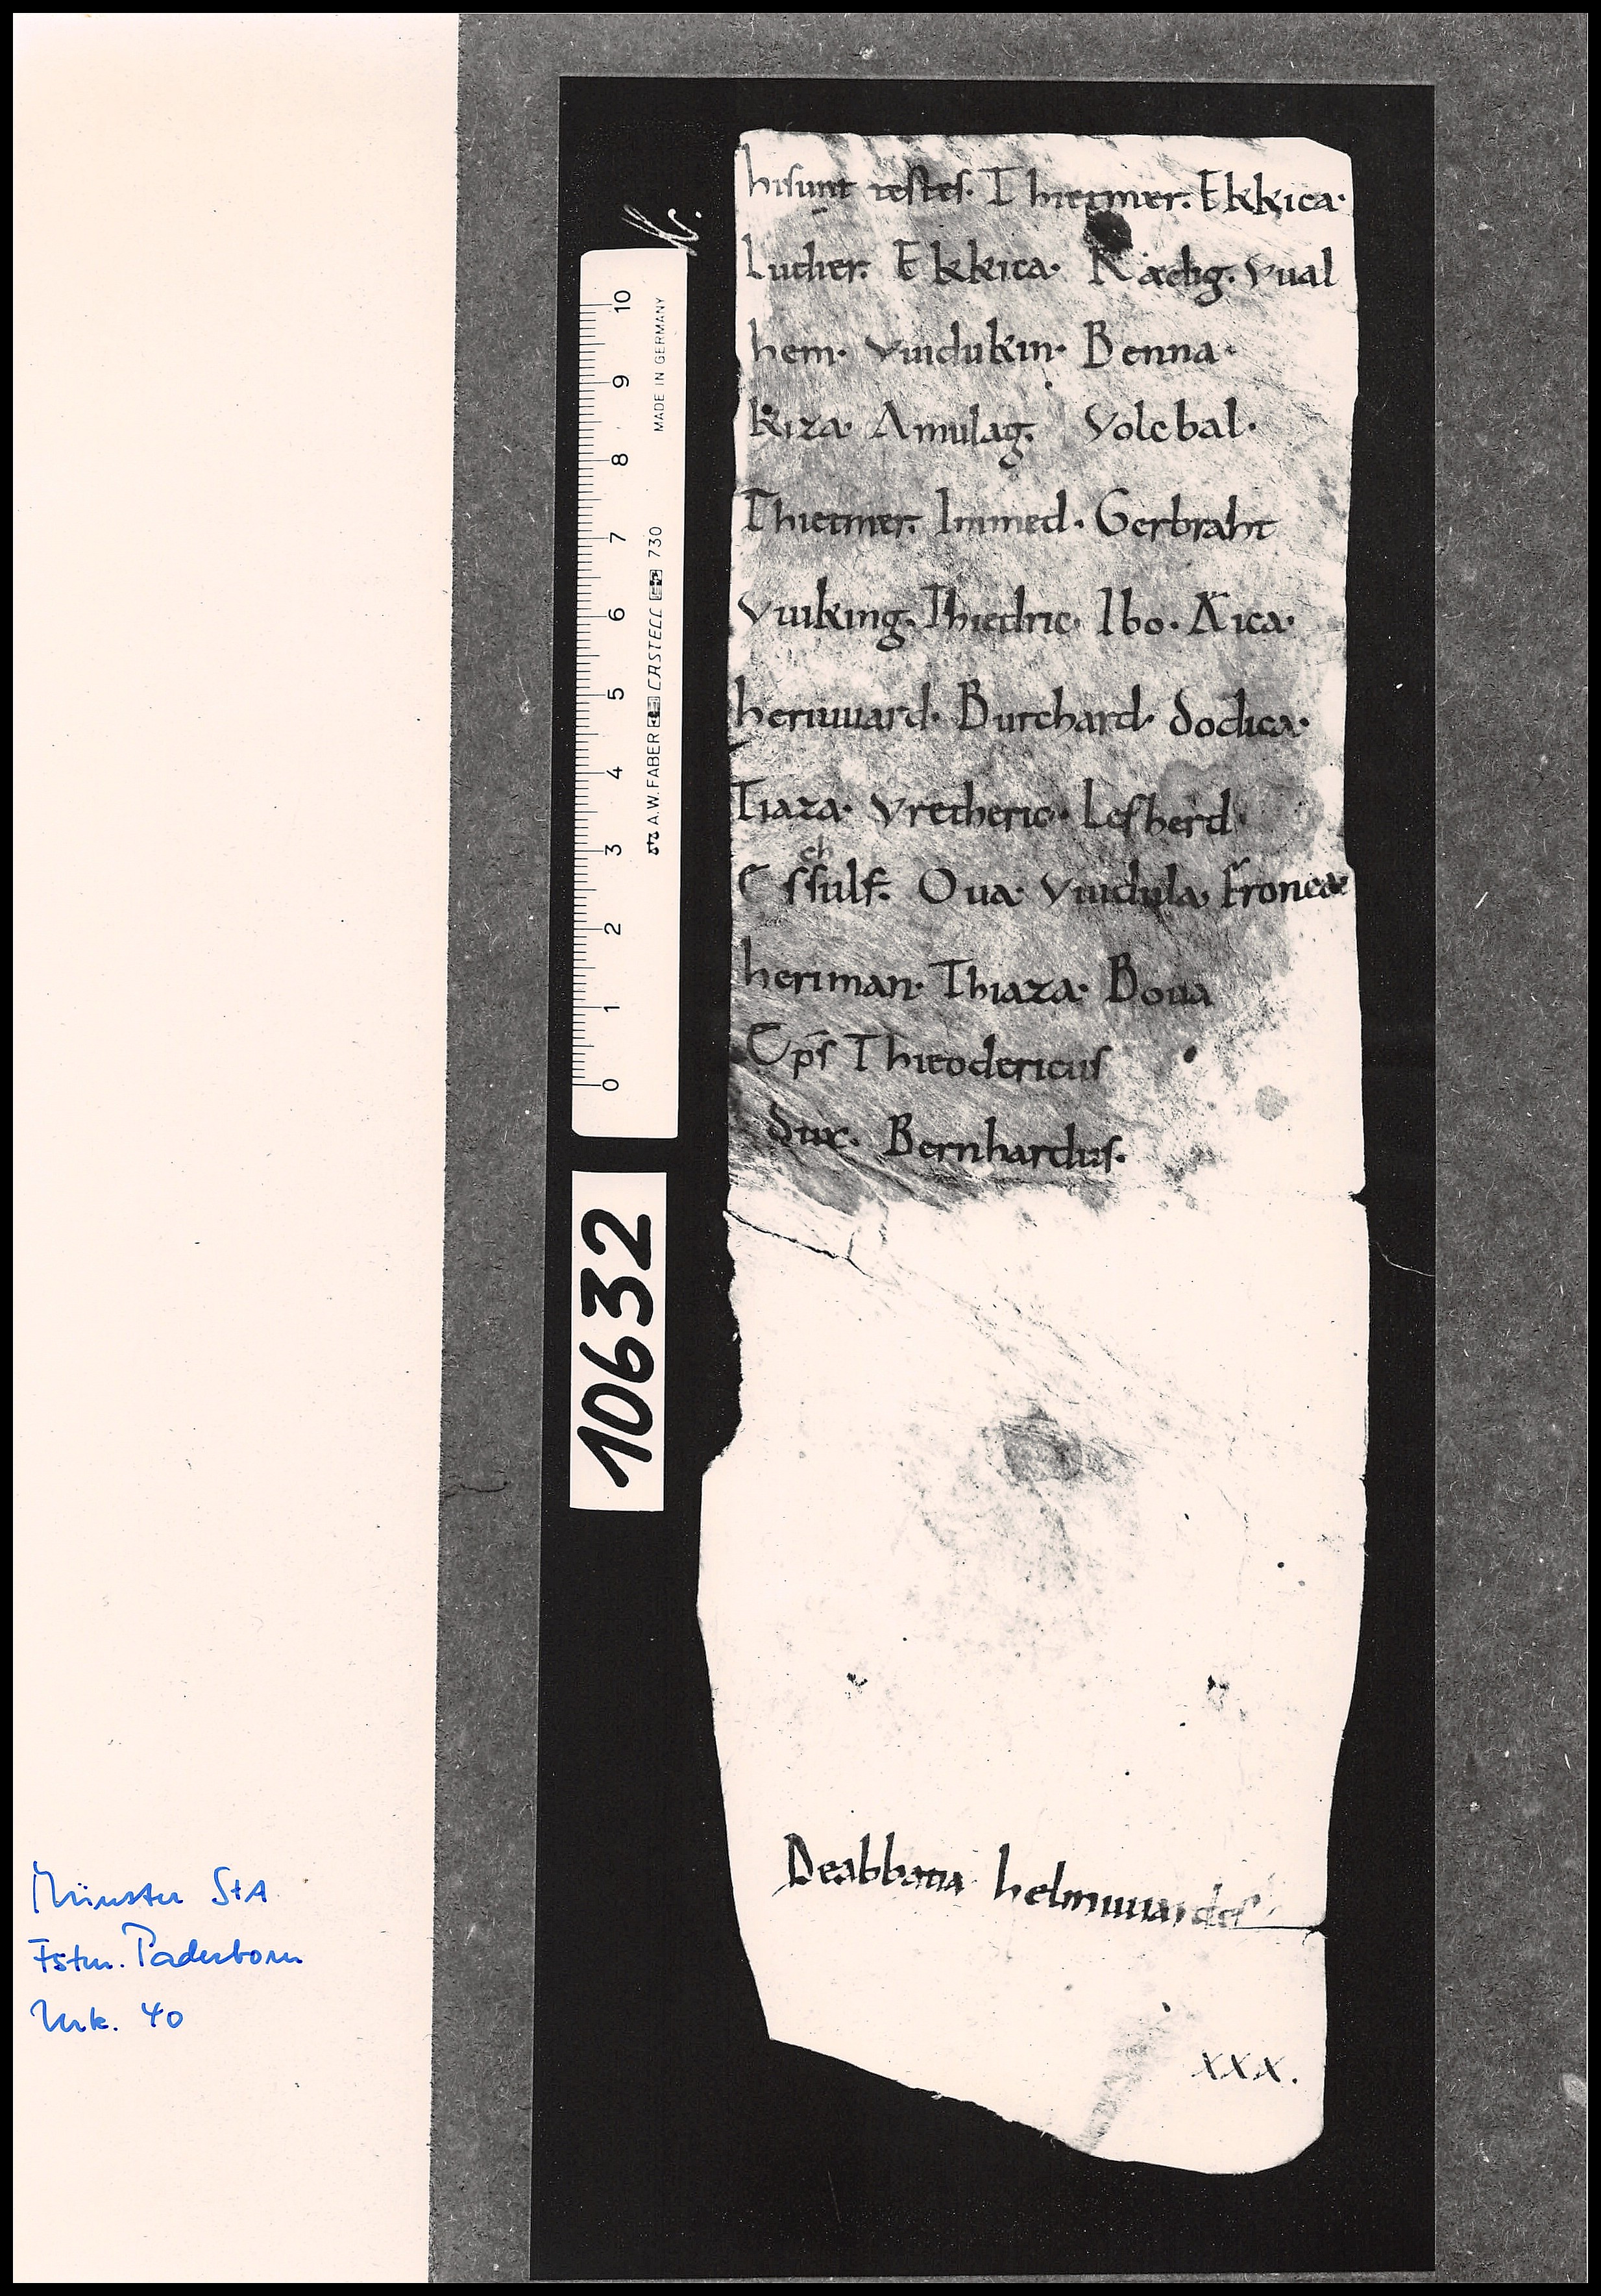 hisunt testes. Thietmer. Ekkica.
Luther. Ekkica. Radig. Vual
hem. Vuidukin. Benna.
Kiza. Amulag. Volcbal.
Thietmer. Immed. Gerbraht
Vuiking. Thiedric. Ibo. Aica.
heriuuard. Burchard. dodica.
Tiaza. Vretheric. Lefherd.
eh
Essulf. Oua. Vuidula. Fronca
heriman. Thiaza. Boua
Ep̄s Thieodericus
dux. Bernhardus.
Deabbatia helmuuardes
xxx.
K.
10 9 8 7 6 5 4 3 2 1 0
MADE IN GERMANY
A.W. FABER CASTELL 730
10632
Münster StA
Fstm. Paderborn
Urk. 40